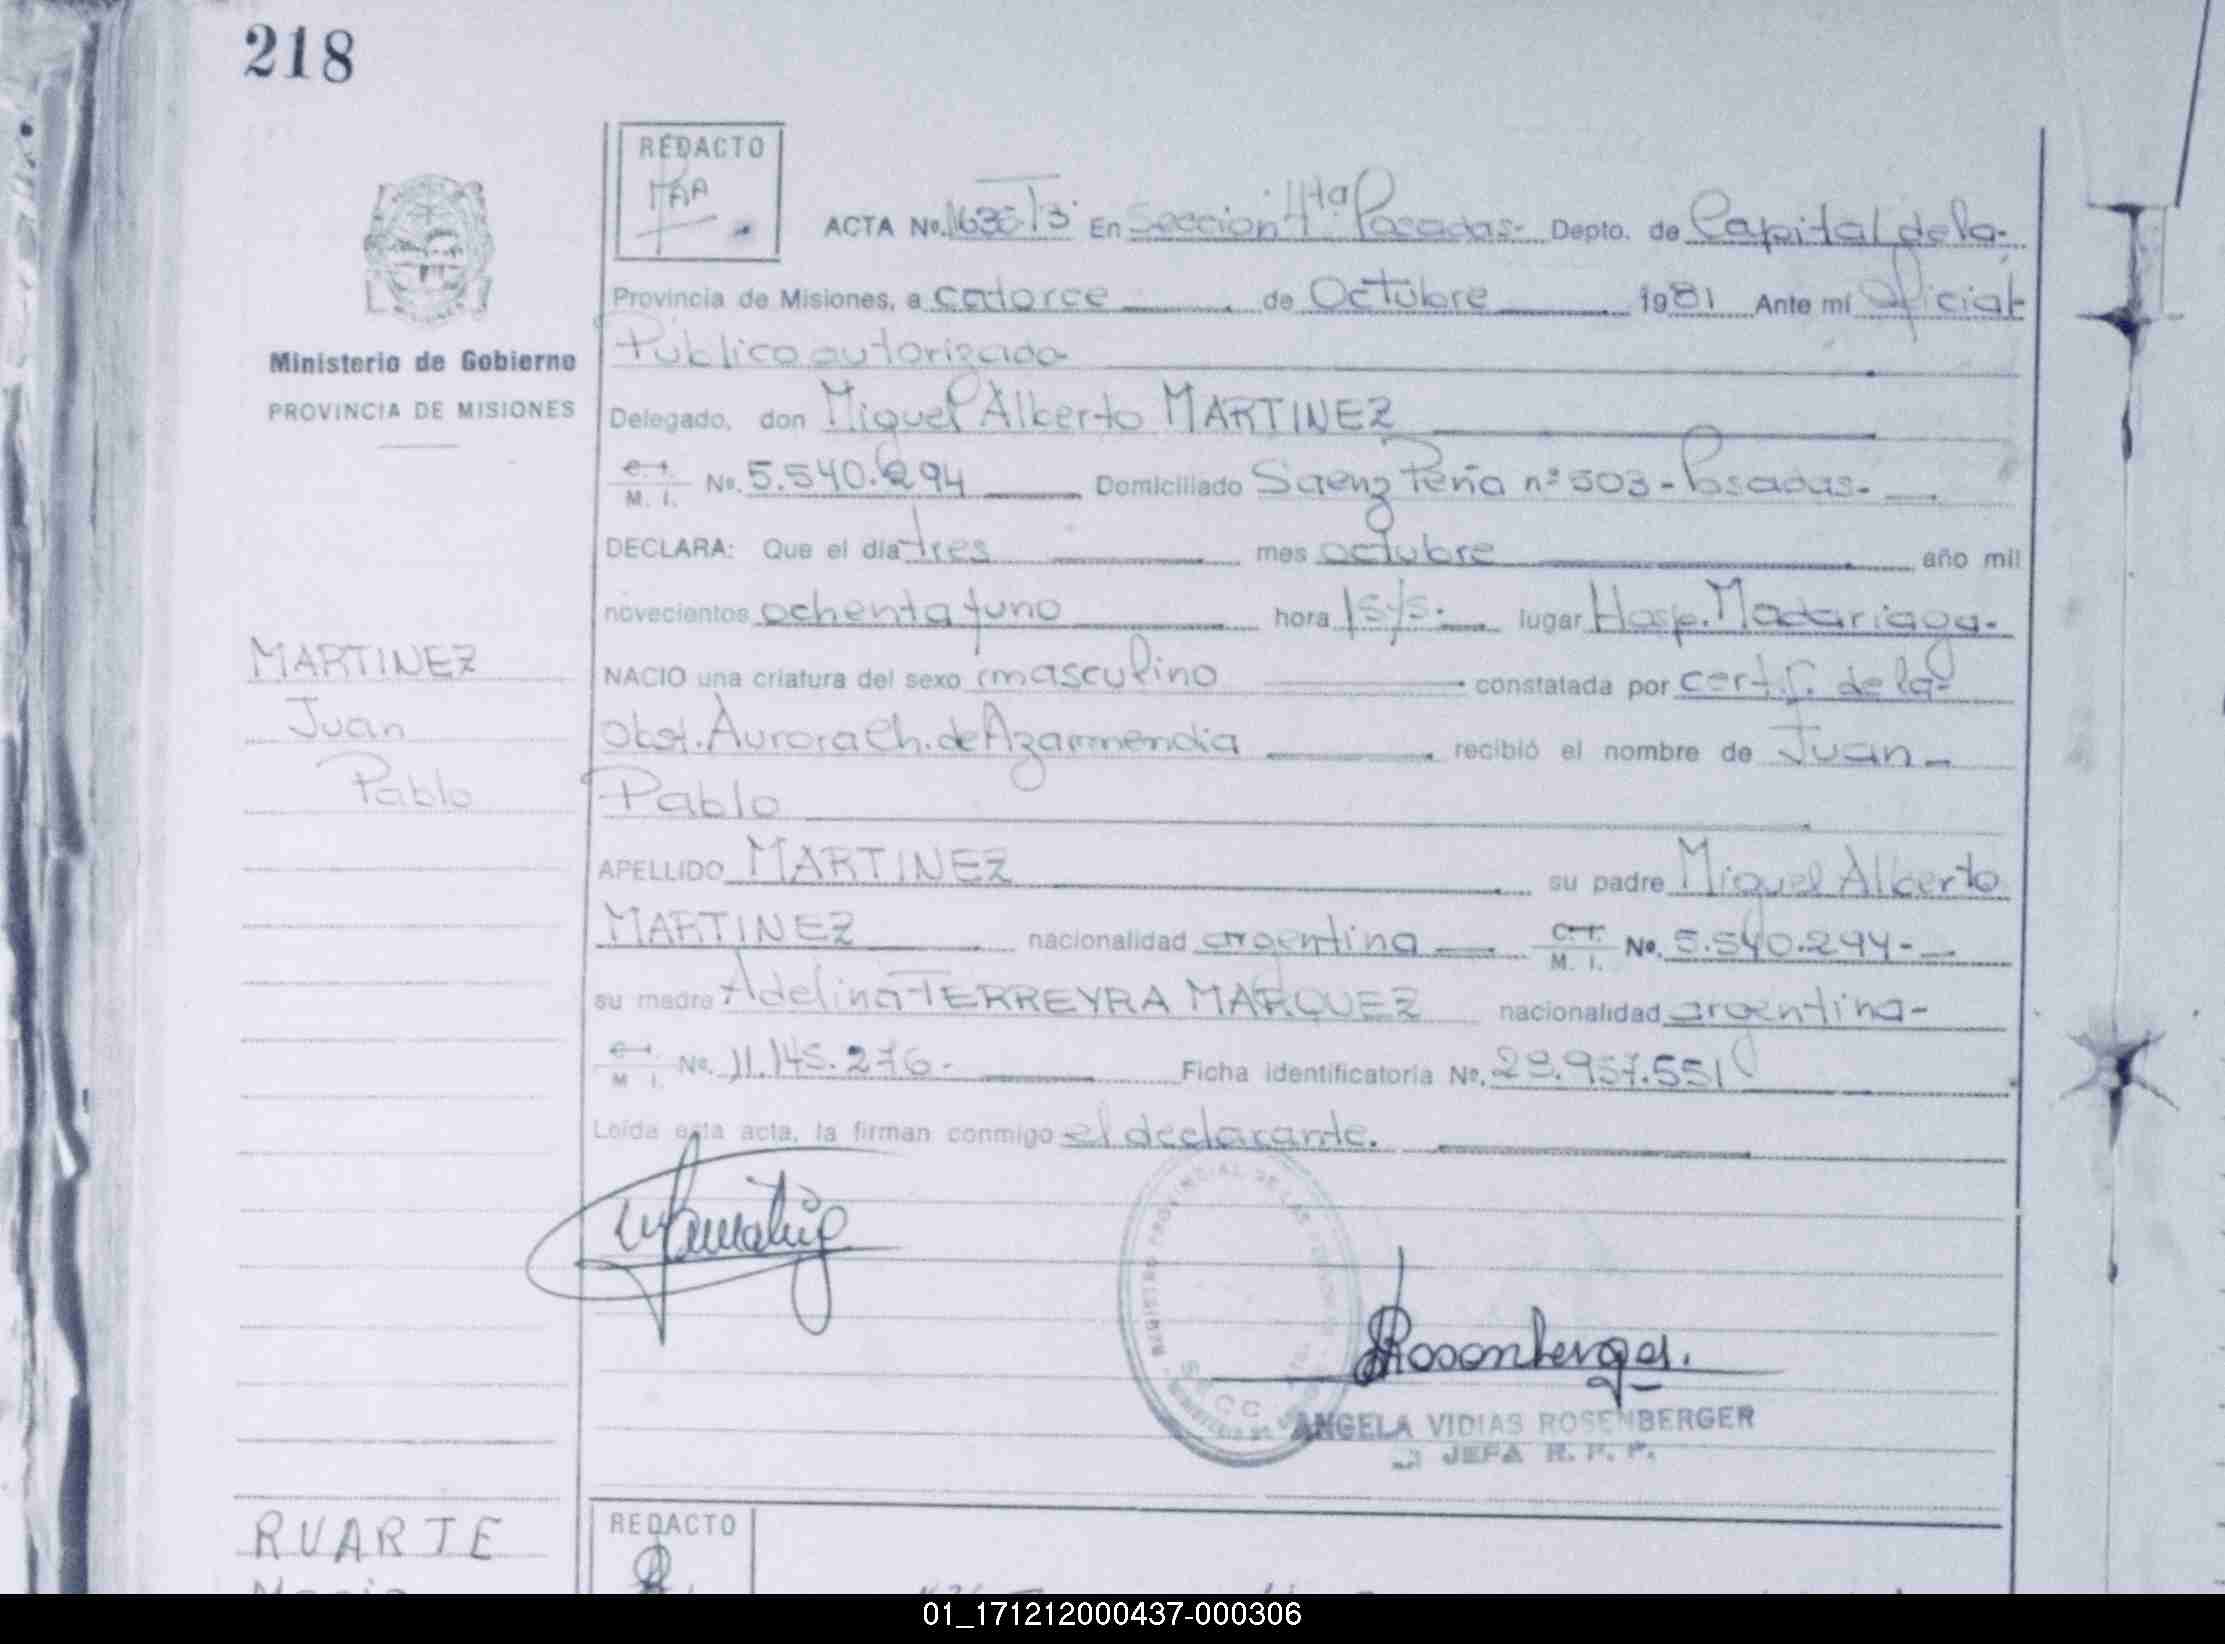 218
REDACTO
ACTA No. En Sección 4ta Posadas- Depto. de Capital de la-
Provincia de Misiones, a catorce de Octubre 1981 Ante mí Oficial
Público autorizado
Ministerio de Gobierno
PROVINCIA DE MISIONES
Delegado, don Miguel Alberto MARTINEZ
M. I. No. 5.540.294 Domiciliado Saenz Peña nº 503-Posadas.-
DECLARA: Que el día tres mes octubre año mil
novecientos ochenta y uno hora lugar Hosp. Madariaga.
MARTINEZ
Juan
Pablo
NACIO una criatura del sexo masculino constatada por certf. de la-
Obst. Aurora Ch. de Azarmendia recibió el nombre de Juan-
Pablo
APELLIDO MARTINEZ su padre Miguel Alberto
MARTINEZ nacionalidad argentina C. I. M. I. No. 5.540.294-
su madre Adelina TERREYRA MARQUEZ nacionalidad argentina-
M I. No. 11.145.276- Ficha identificatoria No. 28.957.551
Leída esta acta, la firman conmigo el declarante.
REGISTRO PROVINCIAL DE LAS
Rosenberger.
ANGELA VIDIAS ROSENBERGER
JEFA R. P. P.
RUARTE
REDACTO
01_171212000437-000306